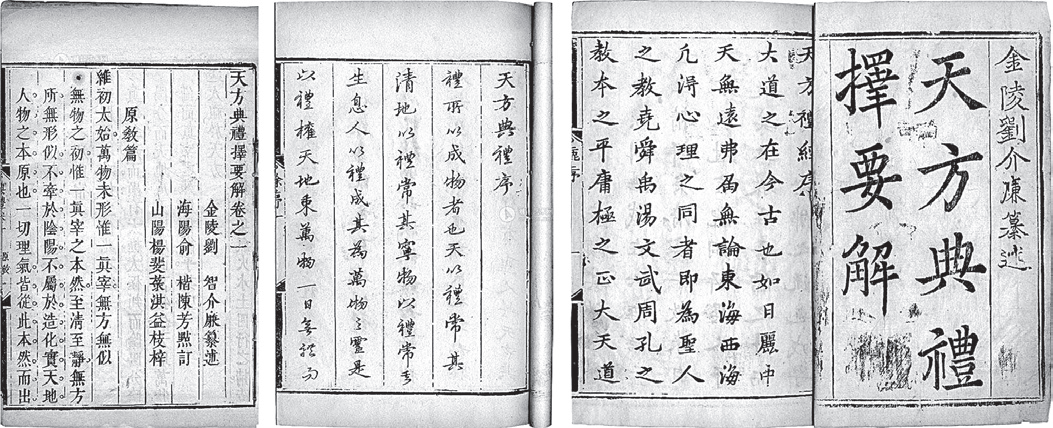 金陵劉介廉纂述
天方典禮
擇要解
天方禮經序
大道之在今古也如日麗中
天無遠弗屆無論東海西海
凢得心理之同者即為聖人
之教堯舜禹湯文武周孔之
教本之平庸極之正大天道
天方典禮序
禮所以成物者也天以禮常其
清地以禮常其寧物以禮常其
生息人以禮成其為萬物之靈是
以禮權天地柬萬物一日無禮而
天方典禮擇要解卷之一
金陵劉 智介廉纂述
海陽俞 楷陳芳㸃訂
山陽楊斐菉淇益校梓
原教篇
維初太始萬物未形惟一真宰無方無似
無物之初惟一真宰之本然至清至靜無方
所無形似不牽於陰陽不屬於造化實天地
人物之本原也一切理氣皆從此本然而出